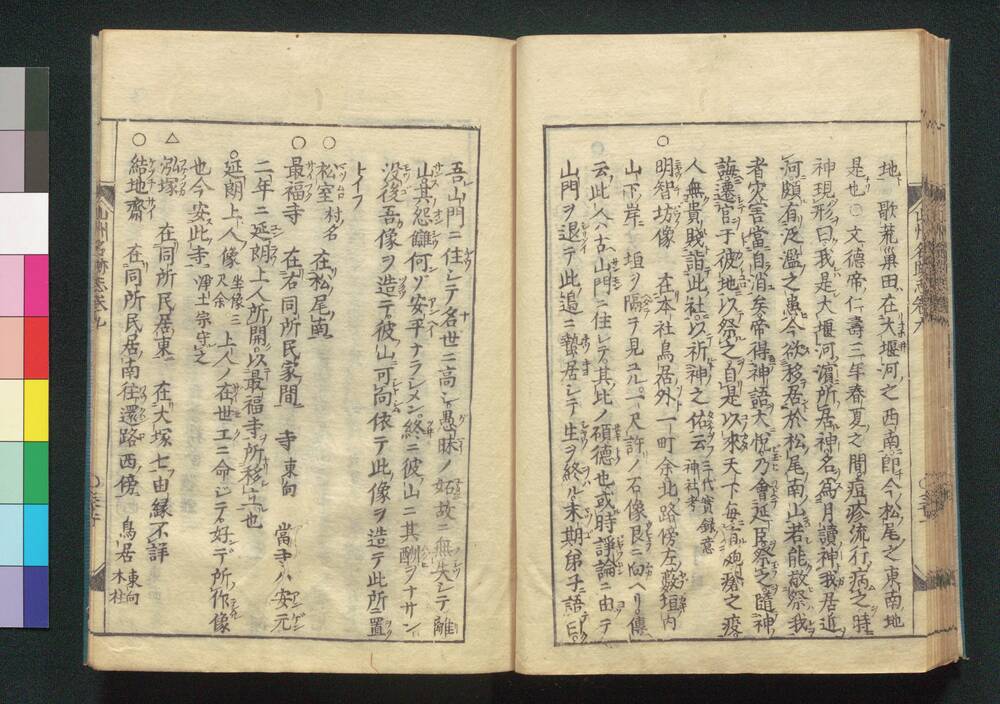 地 歌荒巣田在大堰河之西南即今松尾之東南地
是也○文德帝仁壽三年春夏之間疱疹流行病之時
神現形曰我是大堰河濱所居神名爲月讀神我居近
河頗有泛濫之患今欲移居於松尾南山若能敬祭我
者灾害當自消矣帝得神語大悅乃會延臣祭之隨神
誨遷宮于彼地以祭之自是以來天下毎有疱瘡之疫
人無貴賤詣此社以祈神之佑云 三代實録意 神社考
○明智坊像 在本社鳥居外一町余北路傍左薮垣内
山下岸ニ垣ヲ隔テ見ユル一尺許ノ石像艮ニ向ヘリ傳
云此人古山門ニ住シテ其比ノ碩德也或時諍論ニ由テ
山門ヲ退テ此邉ニ蟄居シテ生ヲ終ル末期弟子ニ語曰
吾山門ニ住シテ名世ニ高シ愚昧ノ妬故ニ無失シテ離
山其怨讎何ゾ安平ナラメン終ニ彼山ニ其酬ヲナサン
没後吾像ヲ造テ彼山ニ可向依テ此像ヲ造テ此所ニ置
トイフ
○松室 村名 在松尾南
○最福寺 在右同所民家間 寺東向 當寺ハ安元
二年ニ延朗上人所開以最福寺所移之也
○延朗上人像 坐像三尺余 上人ノ在世エニ命シテ好デ所作像
也今安此寺 浄土宗守之
△泓塚 在同所民居東ニ 在大塚七由縁不詳
○結地齋 在同所民居南往還路西傍 鳥居 東向木柱
山州名跡志巻九